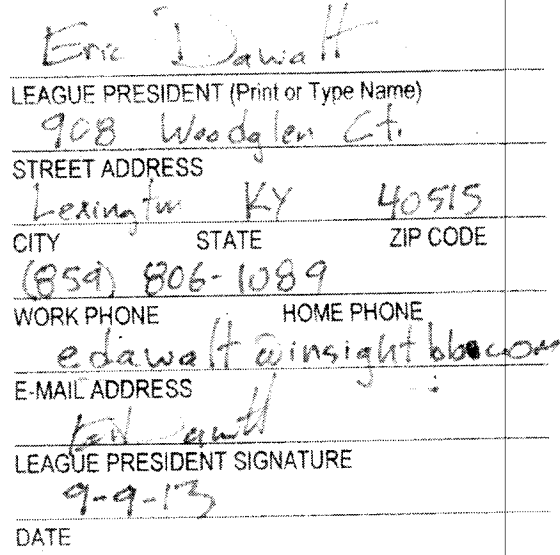 Eric Dawalt
LEAGUE PRESIDENT (Print or Type Name)
908 Woodglen Ct.
STREET ADDRESS
Lexington KY 40515
CITY STATE ZIP CODE
(859) 806-1089
WORK PHONE HOME PHONE
edawalt@insightbb.com
E-MAIL ADDRESS
LEAGUE PRESIDENT SIGNATURE
9-9-13
DATE